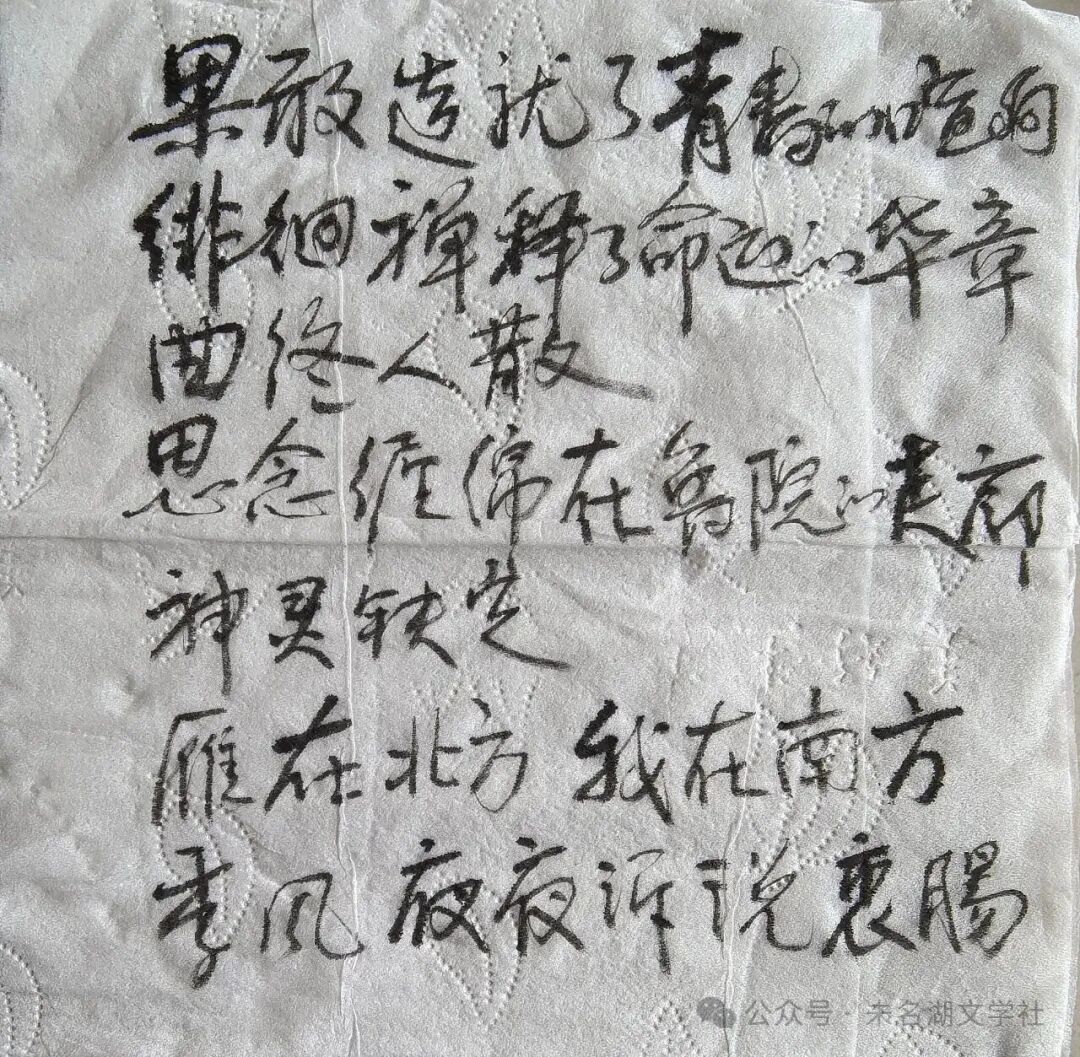 果敢造就了青春的喧响
徘徊禅释了命运的华章
曲终人散
思念缠绵在鲁院的走廊
神灵铁定
雁在北方 我在南方
季风夜夜诉说衷肠
公众号·未名湖文学社